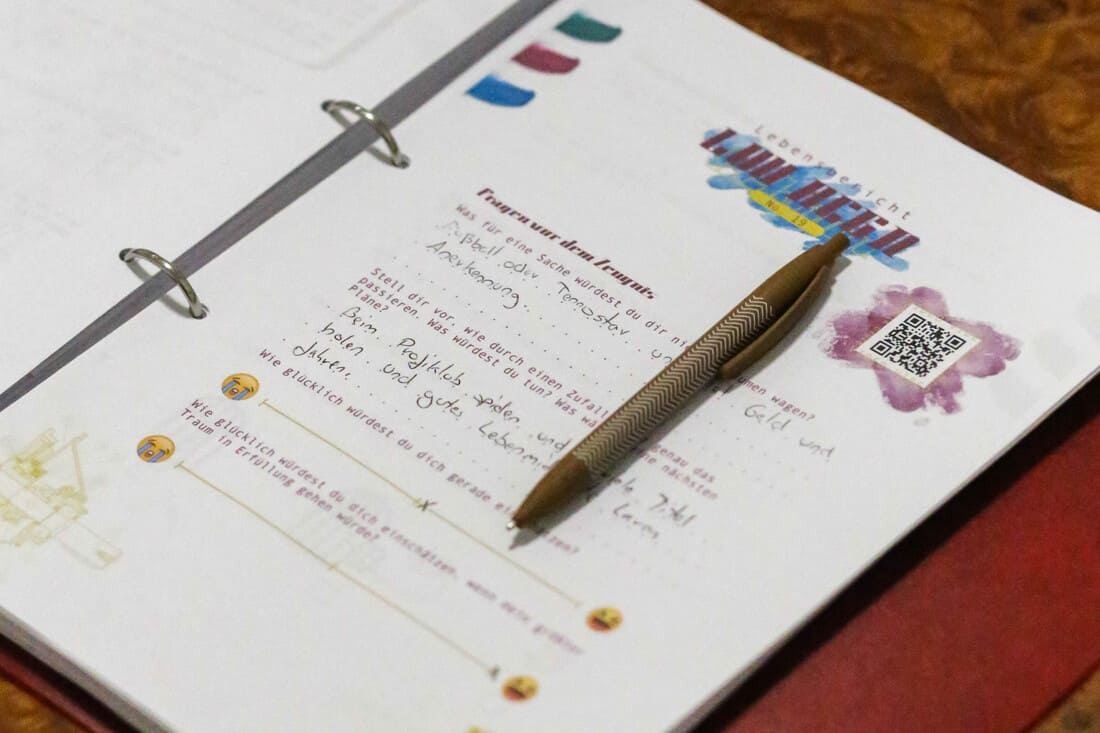 Lebensbericht
No 19
Fragen vor dem Zeugnis
Was für eine Sache würdest du dir ni men wagen?
Fußball oder Tennisstar un Geld und
Anerkennung
Stell dir vor, wie durch einen Zufall genau das
passieren. Was würdest du tun? Was wä ine nächsten
Pläne?
Beim Profiklub spielen und Titel
holen und gutes Leben
Jahren.
Wie glücklich würdest du dich gerade ei zen?
x
Wie glücklich würdest du dich einschätzen, wenn dein größter
Traum in Erfüllung gehen würde?
x